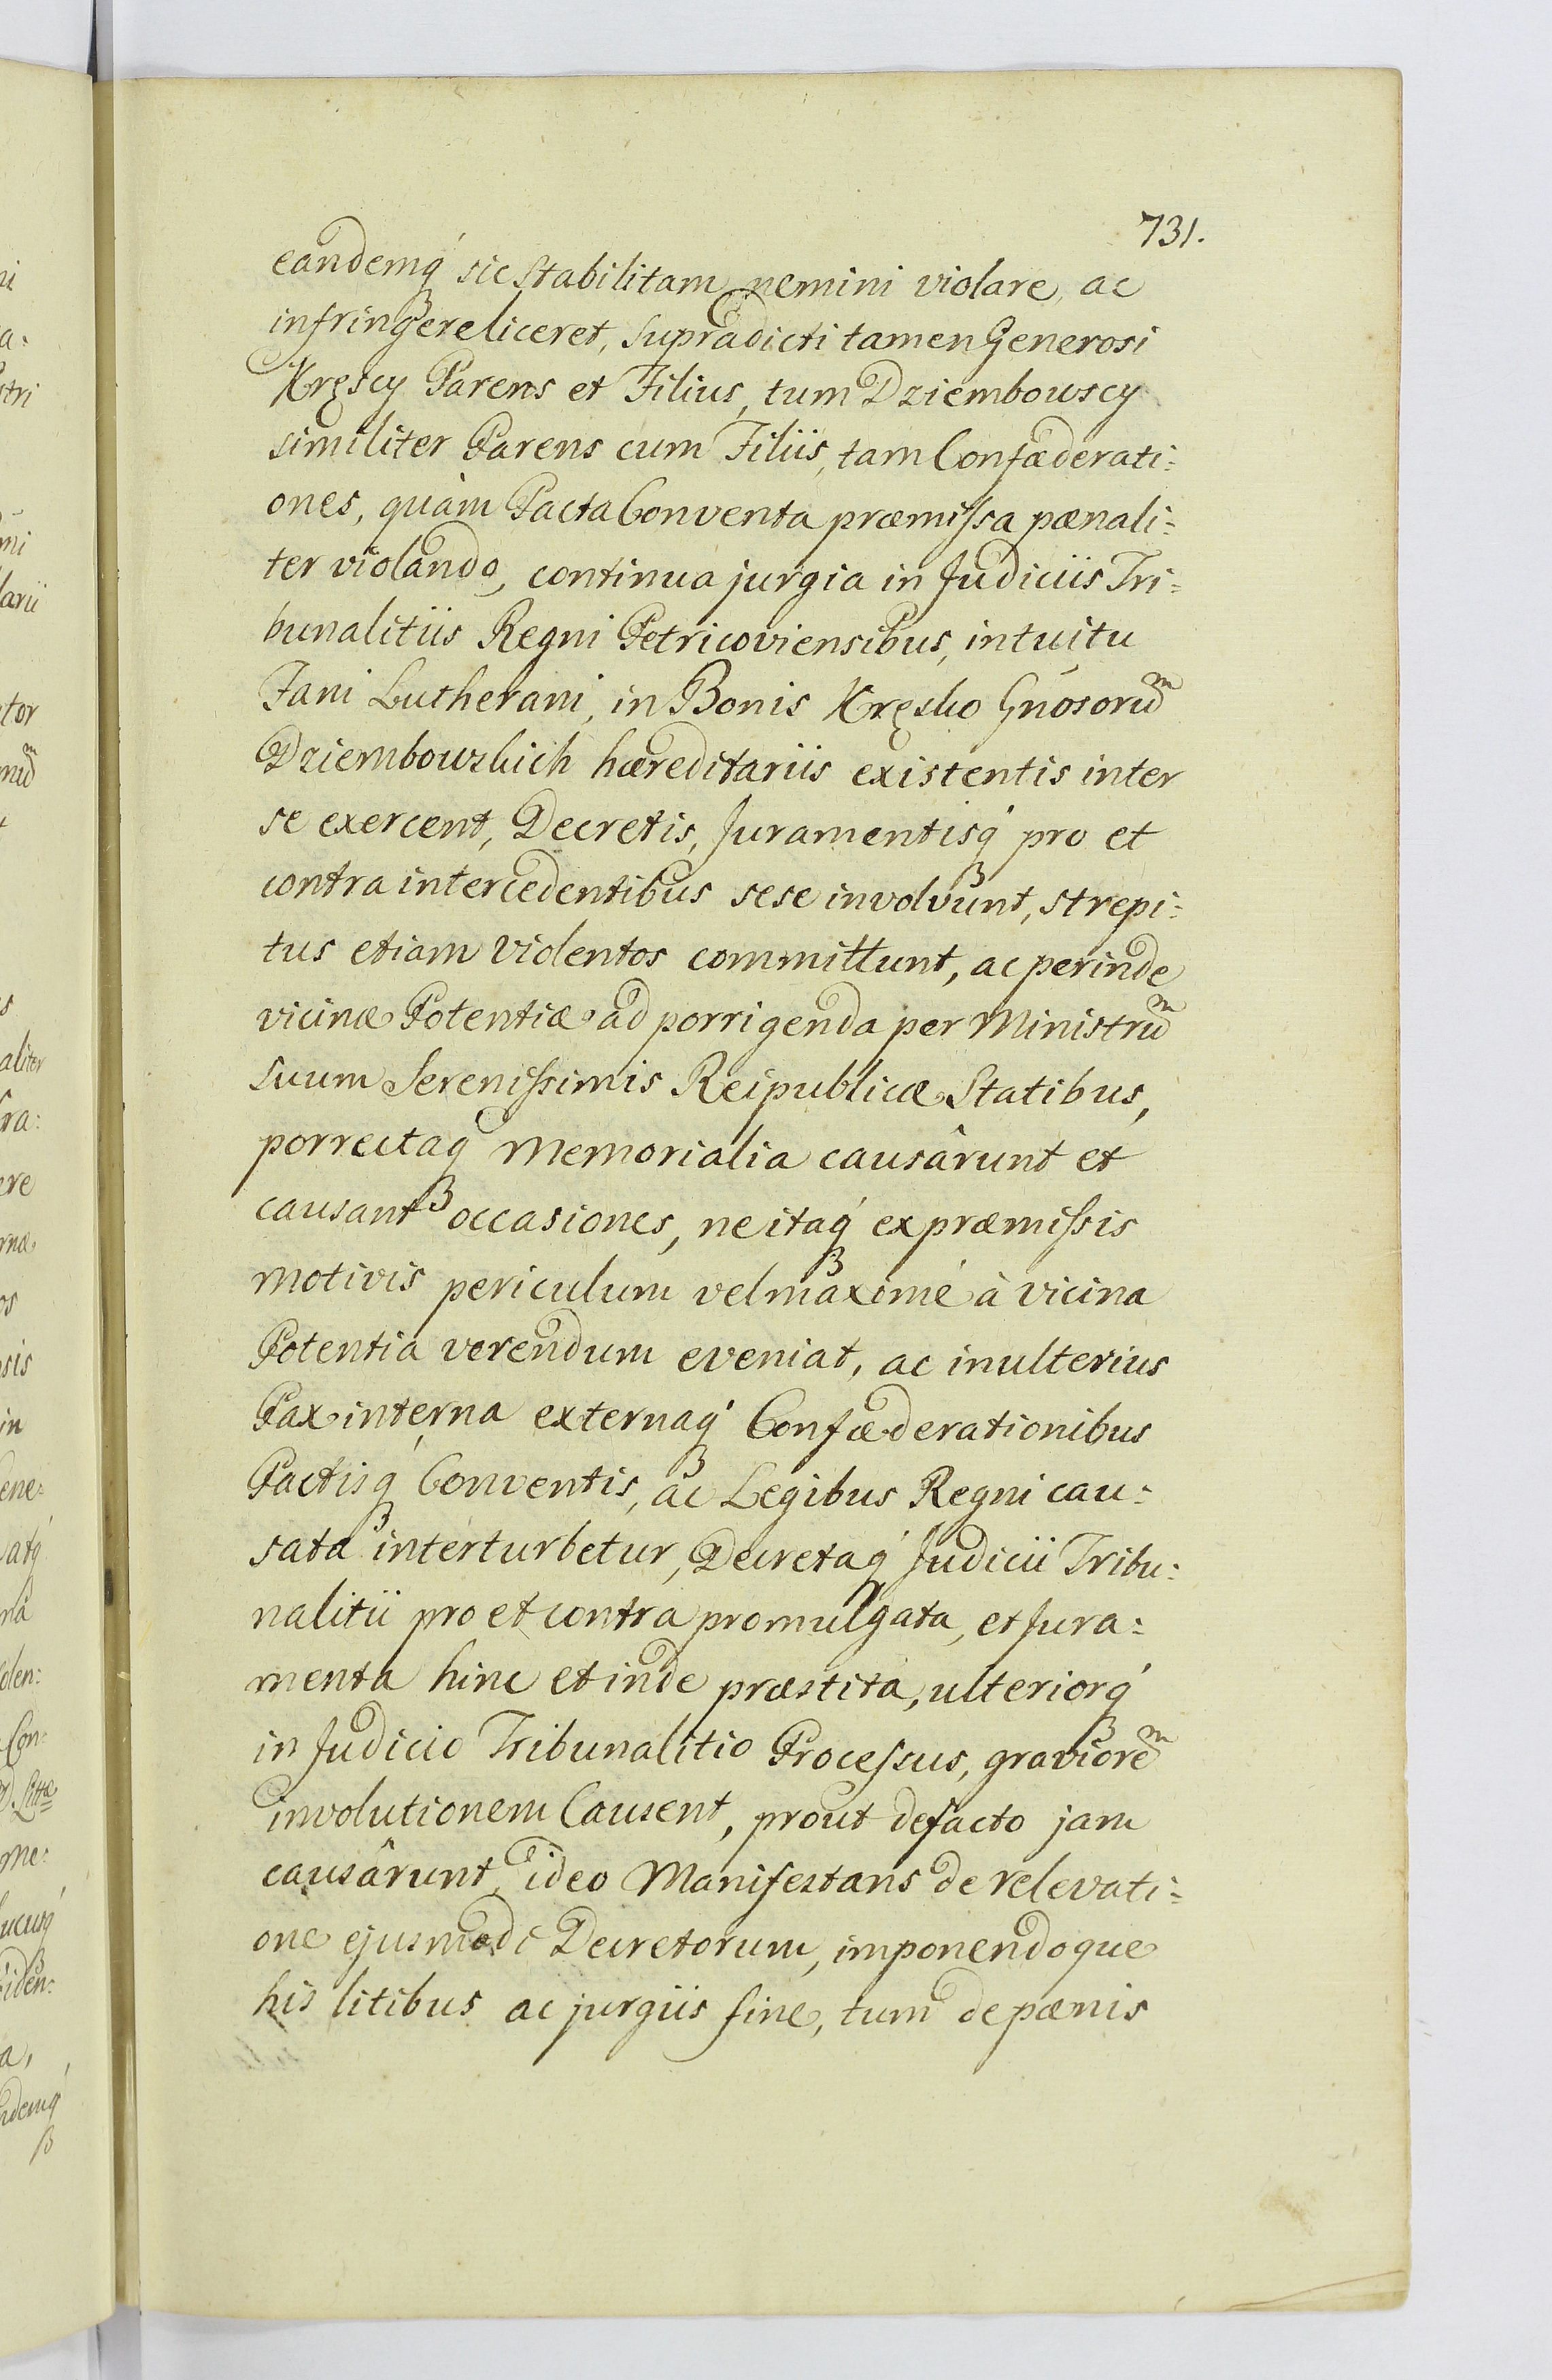 731.
eandemq́ sic stabilitam nemini violare, ac
infringere liceret, supradicti tamen Generosi
Kręscy Parens et Filius, tum Dziembowscy
similiter Parens cum Filiis, tam Confæderati:
ones, quàm Pacta Conventa præmissa pænali:
ter violando, continua jurgia in Judiciis Tri:
bunalitiis Regni Petricoviensibus, intuitu
Fani Lutherani, in Bonis Kręsko Gnosoruͫ
Dziembowskich hæreditariis existentis inter
se exercent, Decretis, Juramentisq́ pro et
contra intercedentibus sese involvunt, strepi:
tus etiam violentos committunt, ac perinde
vicinæ Potentiæ ad porrigenda per Ministruͫ
suum Serenissimis Reipublicæ Statibus,
porrectaq́ Memorialia causârunt et
causant occasiones, ne itaq́ ex præmissis
motivis periculum vel maximé à vicina
Potentia verendum eveniat, ac in ulterius
Pax interna externaq́ Confæderationibus
Pactisq́ Conventis, ac Legibus Regni cau:
sata interturbetur, Decretaq́ Judicii Tribu:
nalitii pro et contra promulgata, et Jura:
menta hinc et inde præstita, ulteriorq́
in Judicio Tribunalitio Processus, gravioreͫ
involutionem Causent, prout de facto jam
causârunt, ideo Manifestans de relevati:
one ejusmodi Decretorum, imponendoque
his litibus ac jurgiis fine, tum de pænis